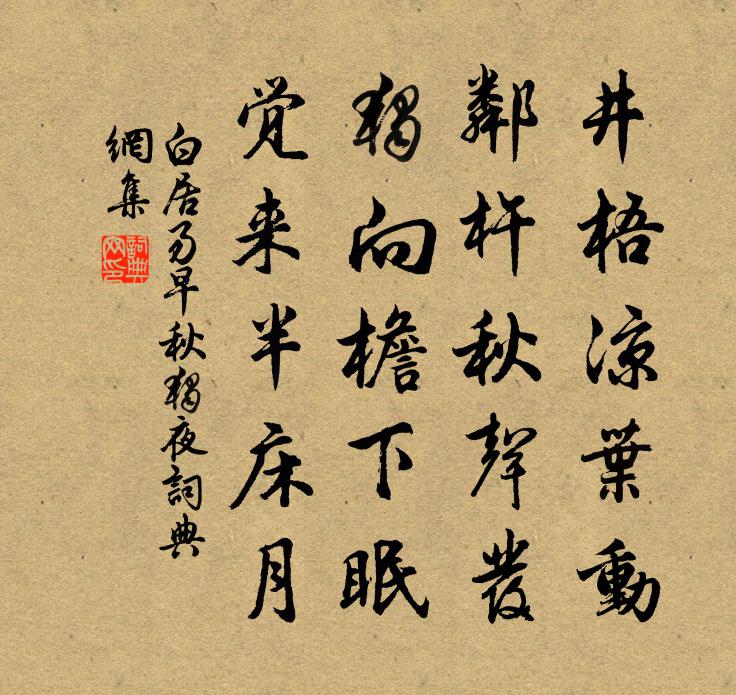 井梧涼葉動
鄰杵秋聲發
獨向檐下眠
覚来半床月
白居易早秋獨夜詞典
網集
詞典网印